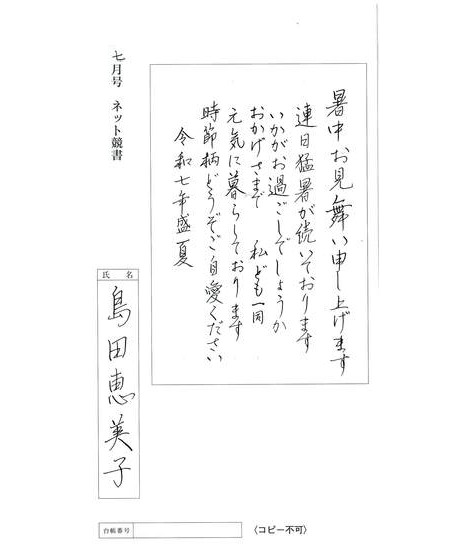 暑中お見舞い申し上げます
連日猛暑が続いております
いかがお過ごしでしょうか
おかげさまで 私ども一同
元気に暮らしております
時節柄どうぞご自愛ください
令和七年盛夏
七月号 ネット競書
氏名
島田恵美子
台帳番号
〈コピー不可〉